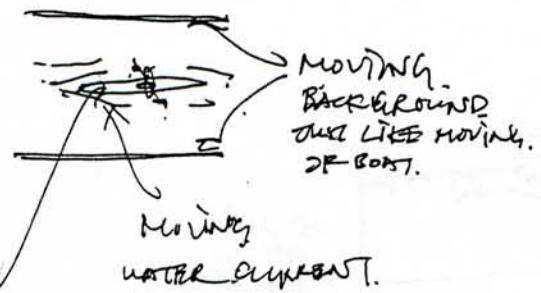 MOVING
BACKGROUND
JUST LIKE MOVING.
OF BOAT.
MOVING
WATER CURRENT.